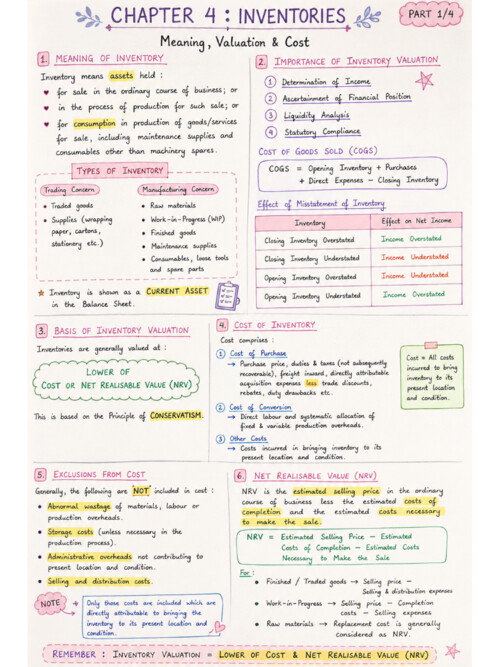 CHAPTER 4 : INVENTORIES
PART 1/4
Meaning, Valuation & Cost
1. MEANING OF INVENTORY
Inventory means assets held :
♥ for sale in the ordinary course of business; or
♥ in the process of production for such sale; or
♥ for consumption in production of goods/services
for sale, including maintenance supplies and
consumables other than machinery spares.
TYPES OF INVENTORY
Trading Concern
• Traded goods
• Supplies (wrapping
paper, cartons,
stationery etc.)
Manufacturing Concern
• Raw materials
• Work-in-Progress (WIP)
• Finished goods
• Maintenance supplies
• Consumables, loose tools
and spare parts
★ Inventory is shown as a CURRENT ASSET
in the Balance Sheet.
2. IMPORTANCE OF INVENTORY VALUATION
1 Determination of Income
2 Ascertainment of Financial Position
3 Liquidity Analysis
4 Statutory Compliance
COST OF GOODS SOLD (COGS)
COGS = Opening Inventory + Purchases
+ Direct Expenses - Closing Inventory
Effect of Misstatement of Inventory
Inventory Effect on Net Income
Closing Inventory Overstated Income Overstated
Closing Inventory Understated Income Understated
Opening Inventory Overstated Income Understated
Opening Inventory Understated Income Overstated
3. BASIS OF INVENTORY VALUATION
Inventories are generally valued at :
LOWER OF
COST OR NET REALISABLE VALUE (NRV)
This is based on the Principle of CONSERVATISM.
4. COST OF INVENTORY
Cost comprises :
1 Cost of Purchase
→ Purchase price, duties & taxes (not subsequently
recoverable), freight inward, directly attributable
acquisition expenses less trade discounts,
rebates, duty drawbacks etc.
2 Cost of Conversion
→ Direct labour and systematic allocation of
fixed & variable production overheads.
3 Other Costs
→ Costs incurred in bringing inventory to its
present location and condition.
Cost = All costs
incurred to bring
inventory to its
present location
and condition.
5. EXCLUSIONS FROM COST
Generally, the following are 'NOT' included in cost :
• Abnormal wastage of materials, labour or
production overheads.
• Storage costs (unless necessary in the
production process).
• Administrative overheads not contributing to
present location and condition.
• Selling and distribution costs.
NOTE → Only those costs are included which are
directly attributable to bringing the
inventory to its present location and
condition.
6. NET REALISABLE VALUE (NRV)
NRV is the estimated selling price in the ordinary
course of business less the estimated costs of
completion and the estimated costs necessary
to make the sale.
NRV = Estimated Selling Price - Estimated
Costs of Completion - Estimated Costs
Necessary to Make the Sale
For :
• Finished / Traded goods → Selling price -
Selling & distribution expenses
• Work-in-Progress → Selling price - Completion
costs - Selling expenses
• Raw materials → Replacement cost is generally
considered as NRV.
REMEMBER : Inventory Valuation = LOWER OF COST & NET REALISABLE VALUE (NRV)